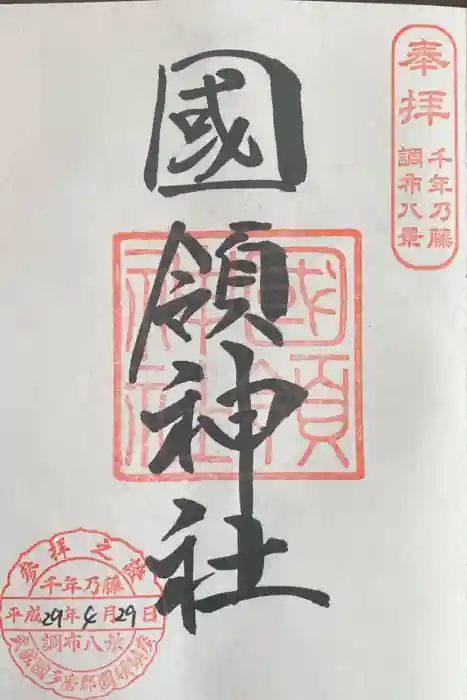 奉拝
千年乃藤
調布八景
國領神社
國領神社
参拝之證
千年乃藤
平成29年4月29日
調布八景
武蔵國多摩郡國領鎮座